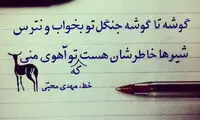 گوشه تا گوشه جنگل تو بخواب و نترس
شیرها خاطرشان هست که تو آهوی منی
خط، مهدی محبّی